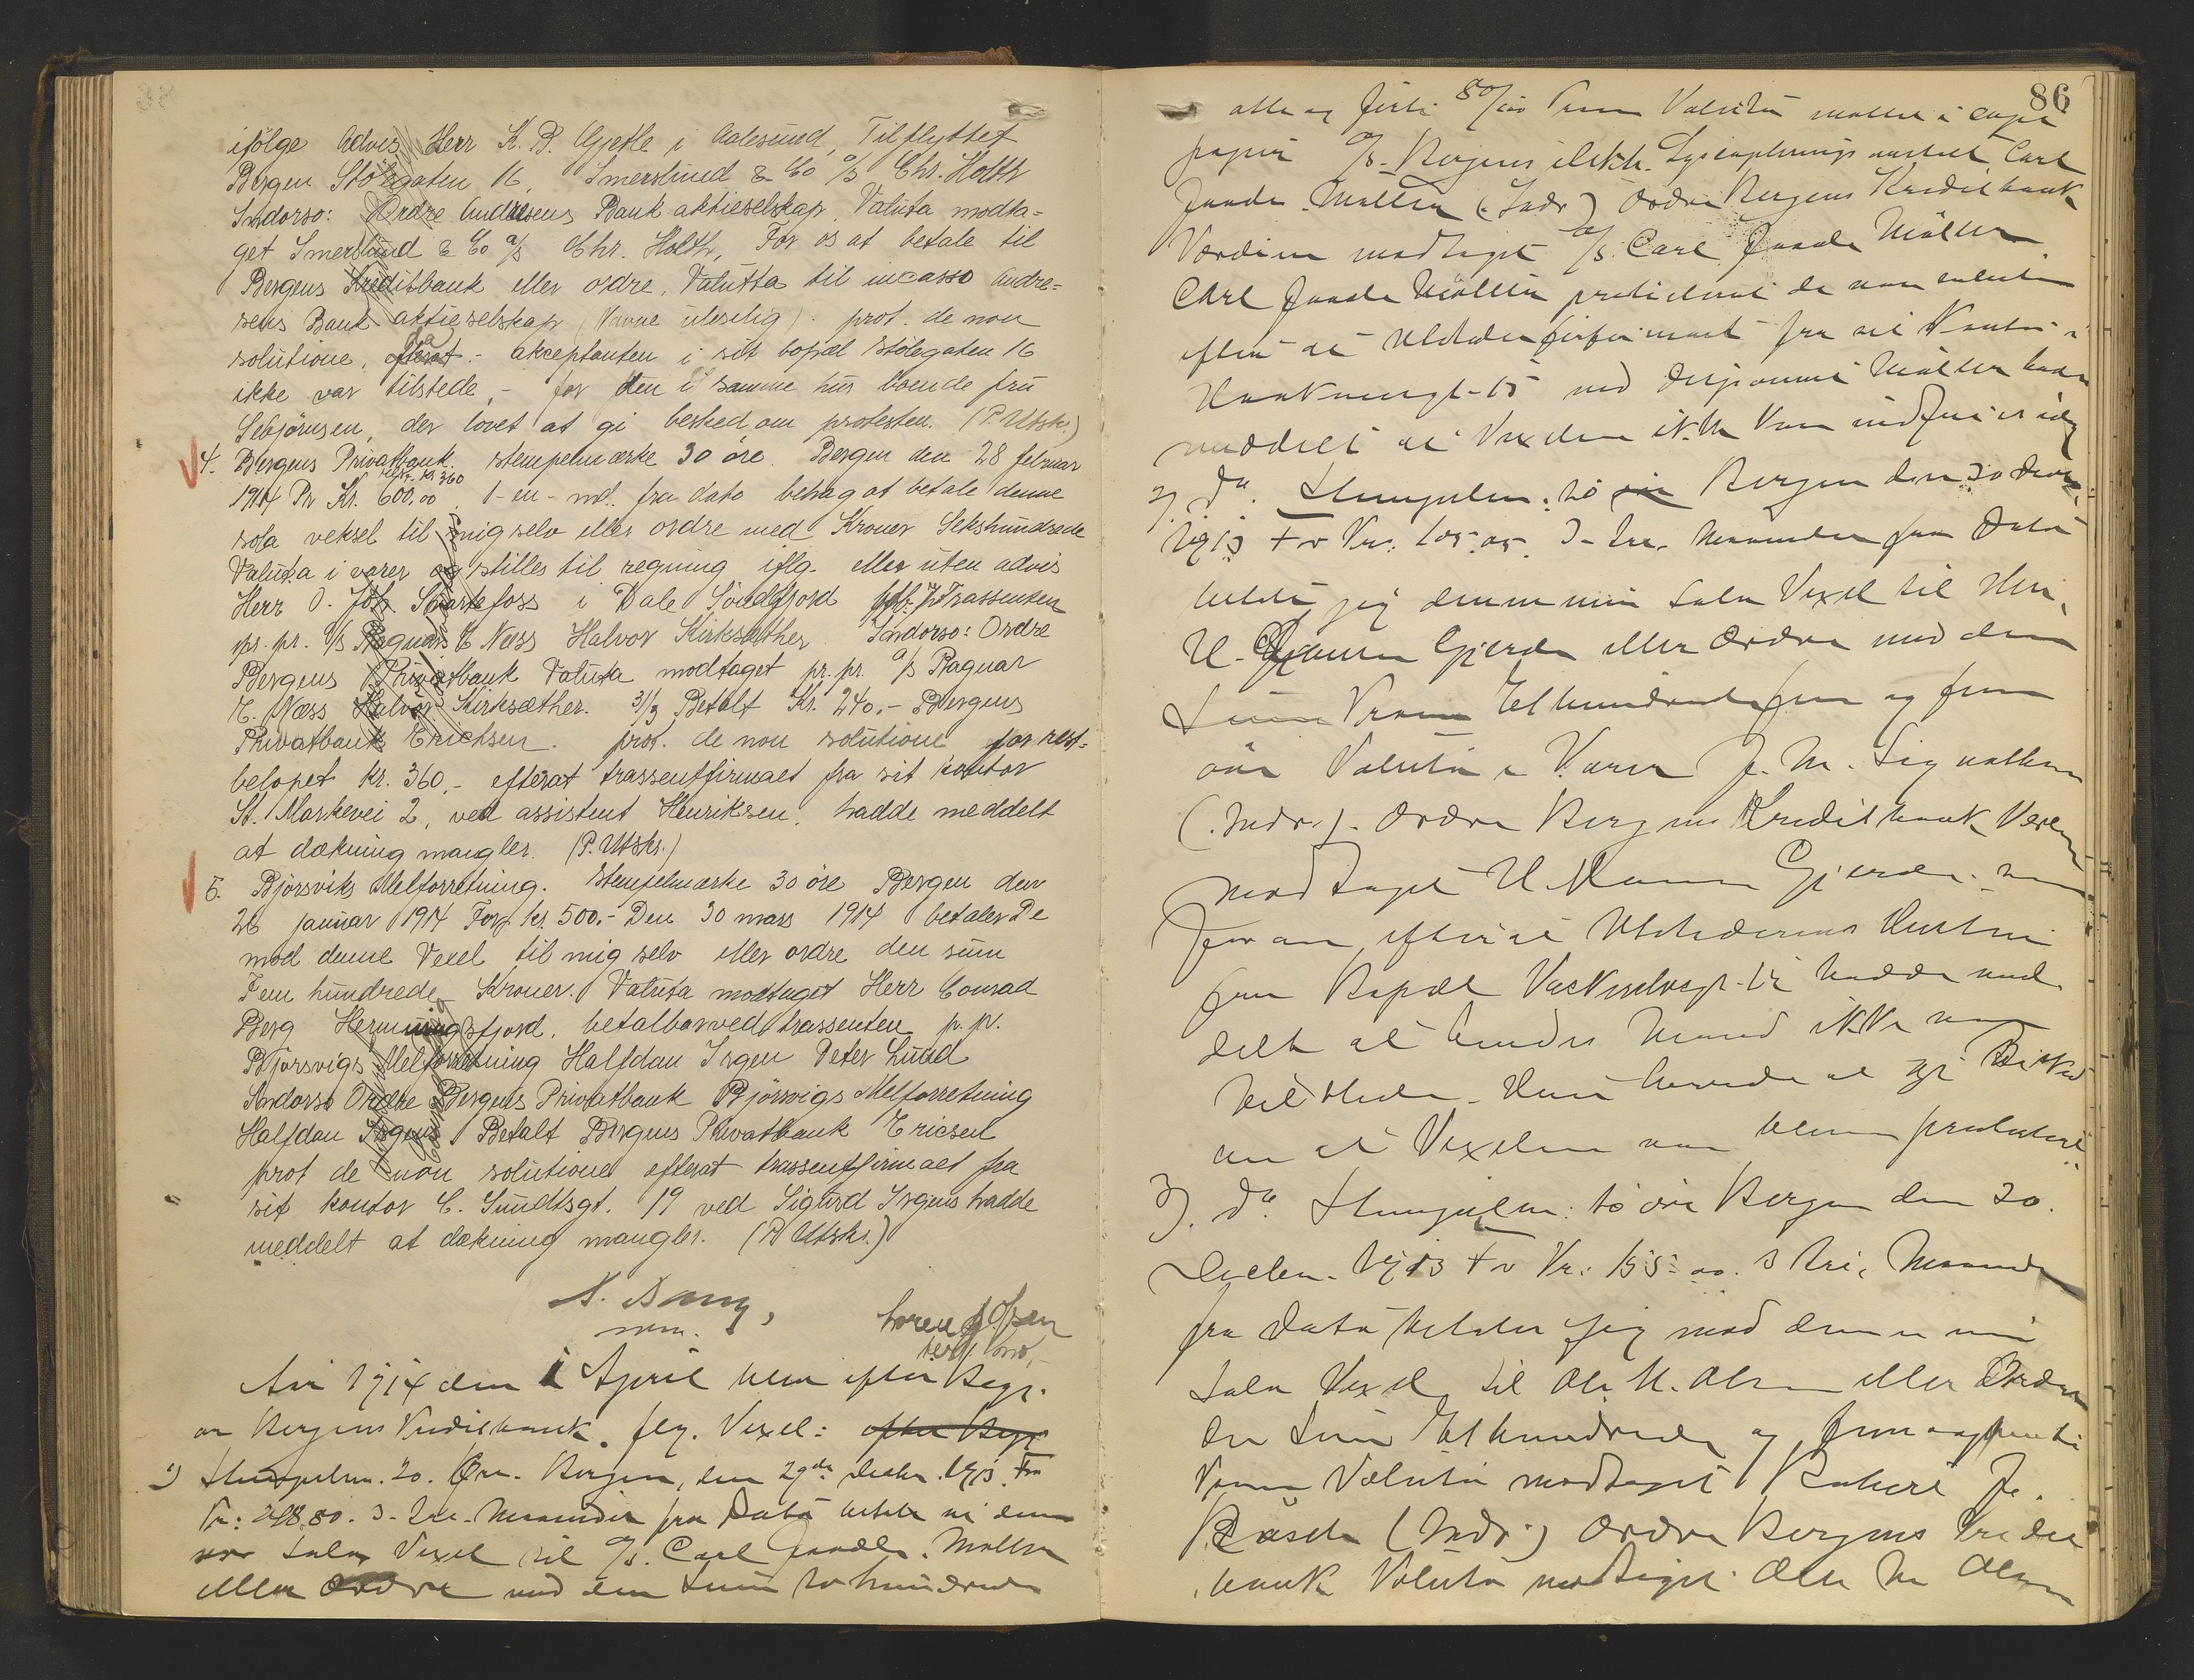 ifølge Advis Herr K. B. Gjetle i Aalesund, Tilflyttet
Bergen Stølegaten 16, Smerslund & Co a/s Chr. Holth
Indorso: Ordre Andresens Bank aktieselskap. Valuta modta=
get Smerslund & Co a/s Chr. Holth, For os at betale til
Bergens Kreditbank eller ordre, Valutta til incasso Andre=
sens Bank aktieselskap (Navne uleselig). prot. de non
solutione, - akceptanten i sit bopæl Stølegaten 16
ikke var tilstede, - for den i samme hus boende fru
Sebjørnsen, der lovet at gi besked om protesten. (P. Utskr.)
4. Bergens Privatbank. Stempelmerke 30 øre. Bergen den 28 februar
rest. kr 360
1914 Pr Kr. 600,00 1-en-md. fra dato behag at betale denne
sola veksel til mig selv eller ordre med Kroner Sekshundrede
Valuta i varer og stilles til regning iflg. eller uten advis
Herr O. Joh Svartefoss i Dale Söndfjord Trassenten
pr. pr. a/s Ragnar E Næss Halvor Kirksæther Indorso: Ordre
Bergens Privatbank Valuta modtaget pr. pr. a/s Ragnar
E. Næss Halvor Kirksæther. 31/3 Betalt Kr. 240.- Bergens
Privatbank Erichsen. prot. de non solutione for rest=
beløpet kr. 360,- efterat trassentfirmaet fra sit kontor
St. Markevei 2, ved assistent Henriksen, hadde meddelt
at dækning mangler. (P. Utskr.)
5. Bjørsviks Melforretning. Stempelmærke 30 øre Bergen den
26 januar 1914 For kr. 500.- Den 30 mars 1914 betaler De
mod denne Vexel til mig selv eller ordre den sum
Fem hundrede Kroner. Valuta modtaget Herr Conrad
Berg Hermingsfjord, betalbar ved trassenten p. p.
Bjørsvigs Melforretning Halfdan Irgen Peter Lund
Indorso Ordre Bergens Privatbank Bjørsvigs Melforretning
Halfdan Irgens Betalt Bergens Privatbank Ericsen
prot de non solutione efterat trassentfirmaet fra
sit kontor C. Sundtsgt. 19 ved Sigurd Irgens hadde
meddelt at dækning mangler. (P Utskr.)
Aar 1914 den 1 April blev efter Begj.
av Bergens Kreditbank flg. Vexel: efter Begj
1) Stempelm. 20. Øre. Bergen, den 29de Decbr. 1913. For
Kr: 248.80. 3-tre-Maaneder fra Dato betale vi denne
vor Sola Vexel til a/s. Carl Möller
eller Ordre med den Sum to hundrede
86
otte og firti 80/100 Kroner Valuta
papir a/s. Bergens elektr. Carl
Möller (Indr.) Ordre Bergens Kreditbank
Værdien modtaget a/s. Carl Möller
Carl Möller protesteret de non solutione
efter at Utstederfirmaet fra sit Kontor i
Haakonsgt. 15 ved Disponent Möller hadde
meddelt at Vexelen ikke kan indfries idag
2) do. Stempelm: 20 øre Bergen den 30 Decbr.
1913 For Kr: 105.05. 3-tre. Maaneder fra Dato
betaler jeg denne min Sola Vexel til Herr,
Gjerde eller Ordre med den
Sum Kroner Et hundrede fem og fem
øre Valuta i Varer J. M. Sigvaldsen
(Indr.). Ordre Bergens Kreditbank
modtaget Gjerde.
efter at Utstederens Hustru
fra Bopæl hadde med
delt at hendes Mand ikke var
tilstede. Hun lovede at gi Besked
om at Vexelen var bleven protesteret
3). do. Stempelm: 20 øre Bergen den 30.
Decbr. 1913 For Kr: 155:00. 3 tre, Maaneder
fra Dato betaler jeg mod denne min
Sola Vexel til Ole M. Olsen eller Ordre
den Sum Et hundrede og fem og femti
Kroner Valuta modtaget
(Indr.) Ordre Bergens Kredit
bank Valuta modtaget Ole M Olsen